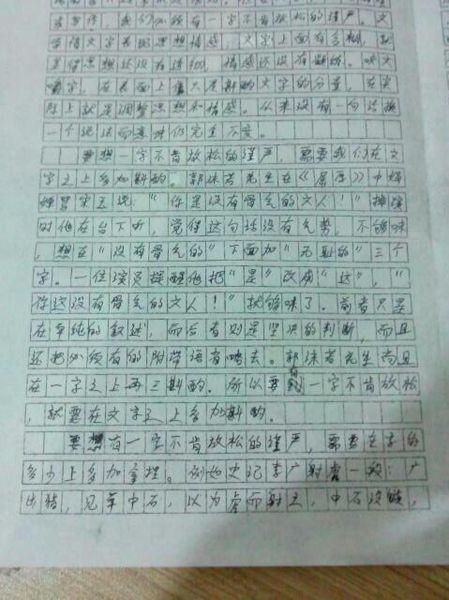 有一字不肯放松的谨严。文
字上面有多
思想还没有透彻,情感还没有凝练。咬文
嚼字,在表面上只是斟酌文字的分量,在实
际上就是调整思想和情感。从来没有一句话换
一个说法而意味仍完全不变。
要想一字不肯放松的谨严,需要我们在文
字之上多加斟酌。郭沫若先生在《屈原》中婵
娟骂宋玉说:“你是没有骨气的文人!”排演
时他在台下听,觉得这句话没有气势,不够味
,想在“没有骨气的”下面加“无耻的”三个
字。一位演员提醒他把“是”改成“这”,“
你这没有骨气的文人!”就够味了。前者只是
在单纯的叙述,而后者则是坚决的判断,而且
还把必须有的附带语省略去。郭沫若先生尚且
在一字之上再三斟酌。所以要有一字不肯放松
,就要在文字之上多加斟酌。
要想有一字不肯放松的谨严,需要在字的
多少上多加掌握。例如史记李广射虎一段:广
出猎,见草中石,以为虎而射之,中石没镞,